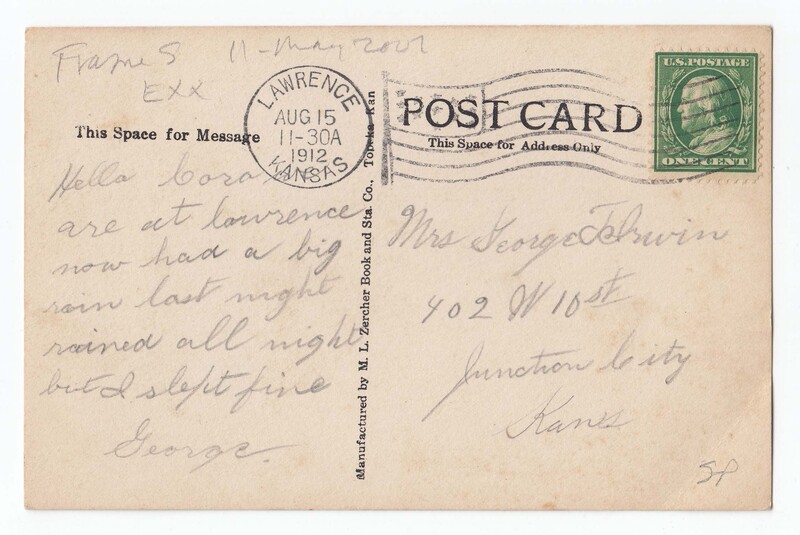 Frame S 11-May 2001
EXX
LAWRENCE
AUG 15
11-30A
1912
KANSAS
This Space for Message
Hello Cora
are at lawrence
now had a big
rain last night
rained all night
but I slept fine
George.
Manufactured by M. L. Zercher Book and Sta. Co., Topeka, Kan
POST CARD
This Space for Address Only
U.S. POSTAGE
ONE CENT
Mrs George Irwin
402 W 10st
Junction City
Kans
SP